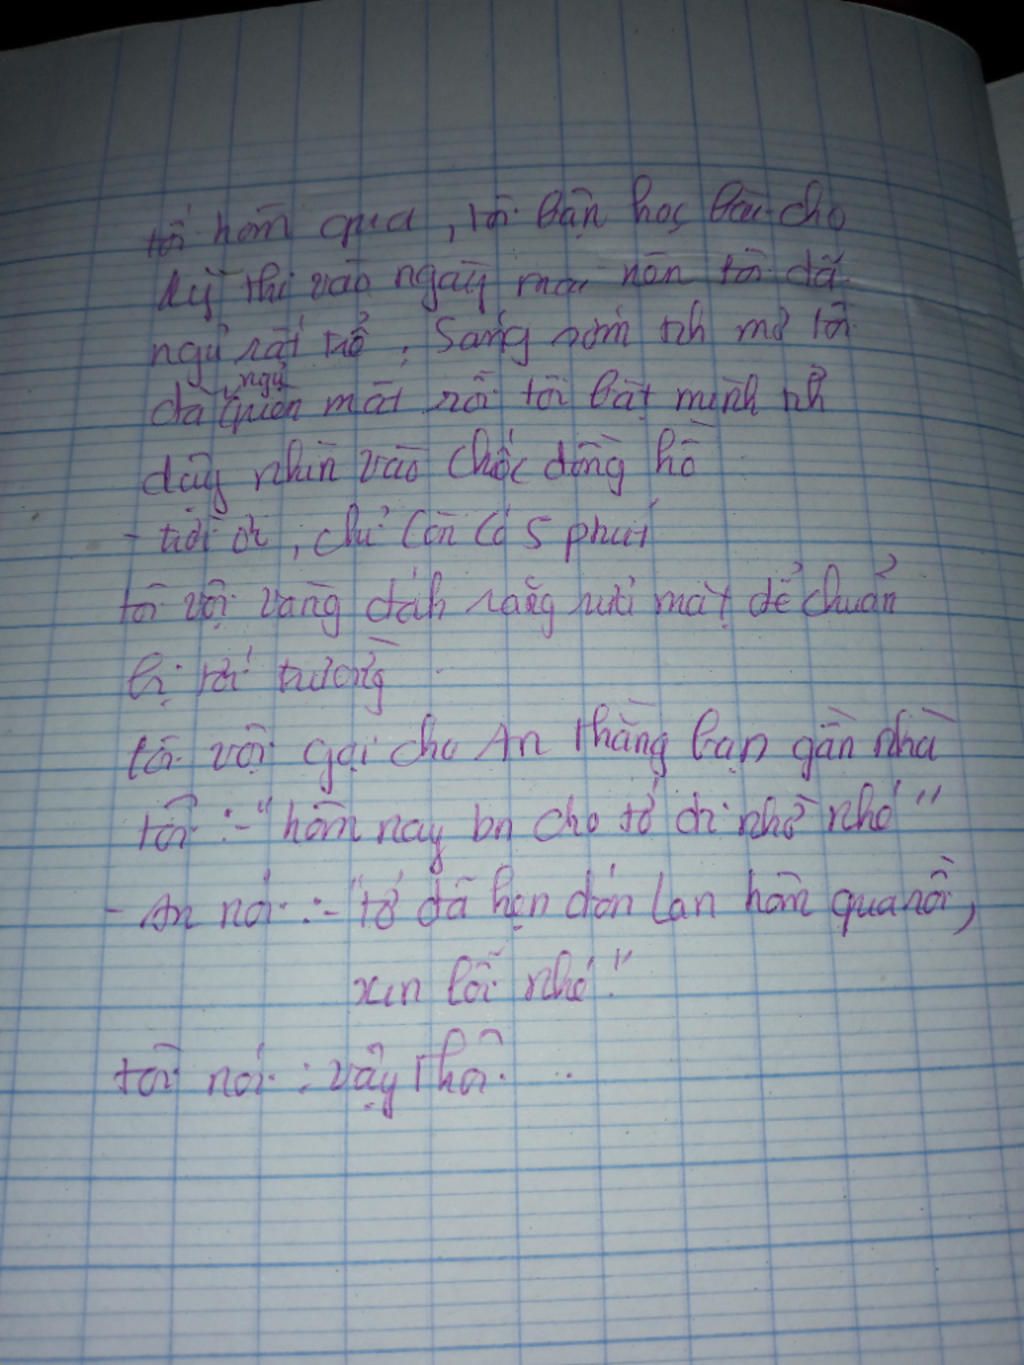 tối hôm qua, tôi bận học bài cho
kỳ thi vào ngày mai nên tôi đã
ngủ rất trễ. Sáng sớm tinh mơ tôi
đã ngủ quên mất rồi tôi bật mình tỉnh
dậy nhìn vào chiếc đồng hồ
- trời ơi, chỉ còn có 5 phút
tôi vội vàng đánh răng rửi mặt để chuẩn
bị tới trường
tôi vội gọi cho An thằng bạn gần nhà
tôi :-" hôm nay bn cho tớ đi nhờ nhé"
- An nói :-"tớ đã hẹn đón Lan hôm qua rồi,
xin lỗi nhé."
tôi nói : vậy thôi. ..